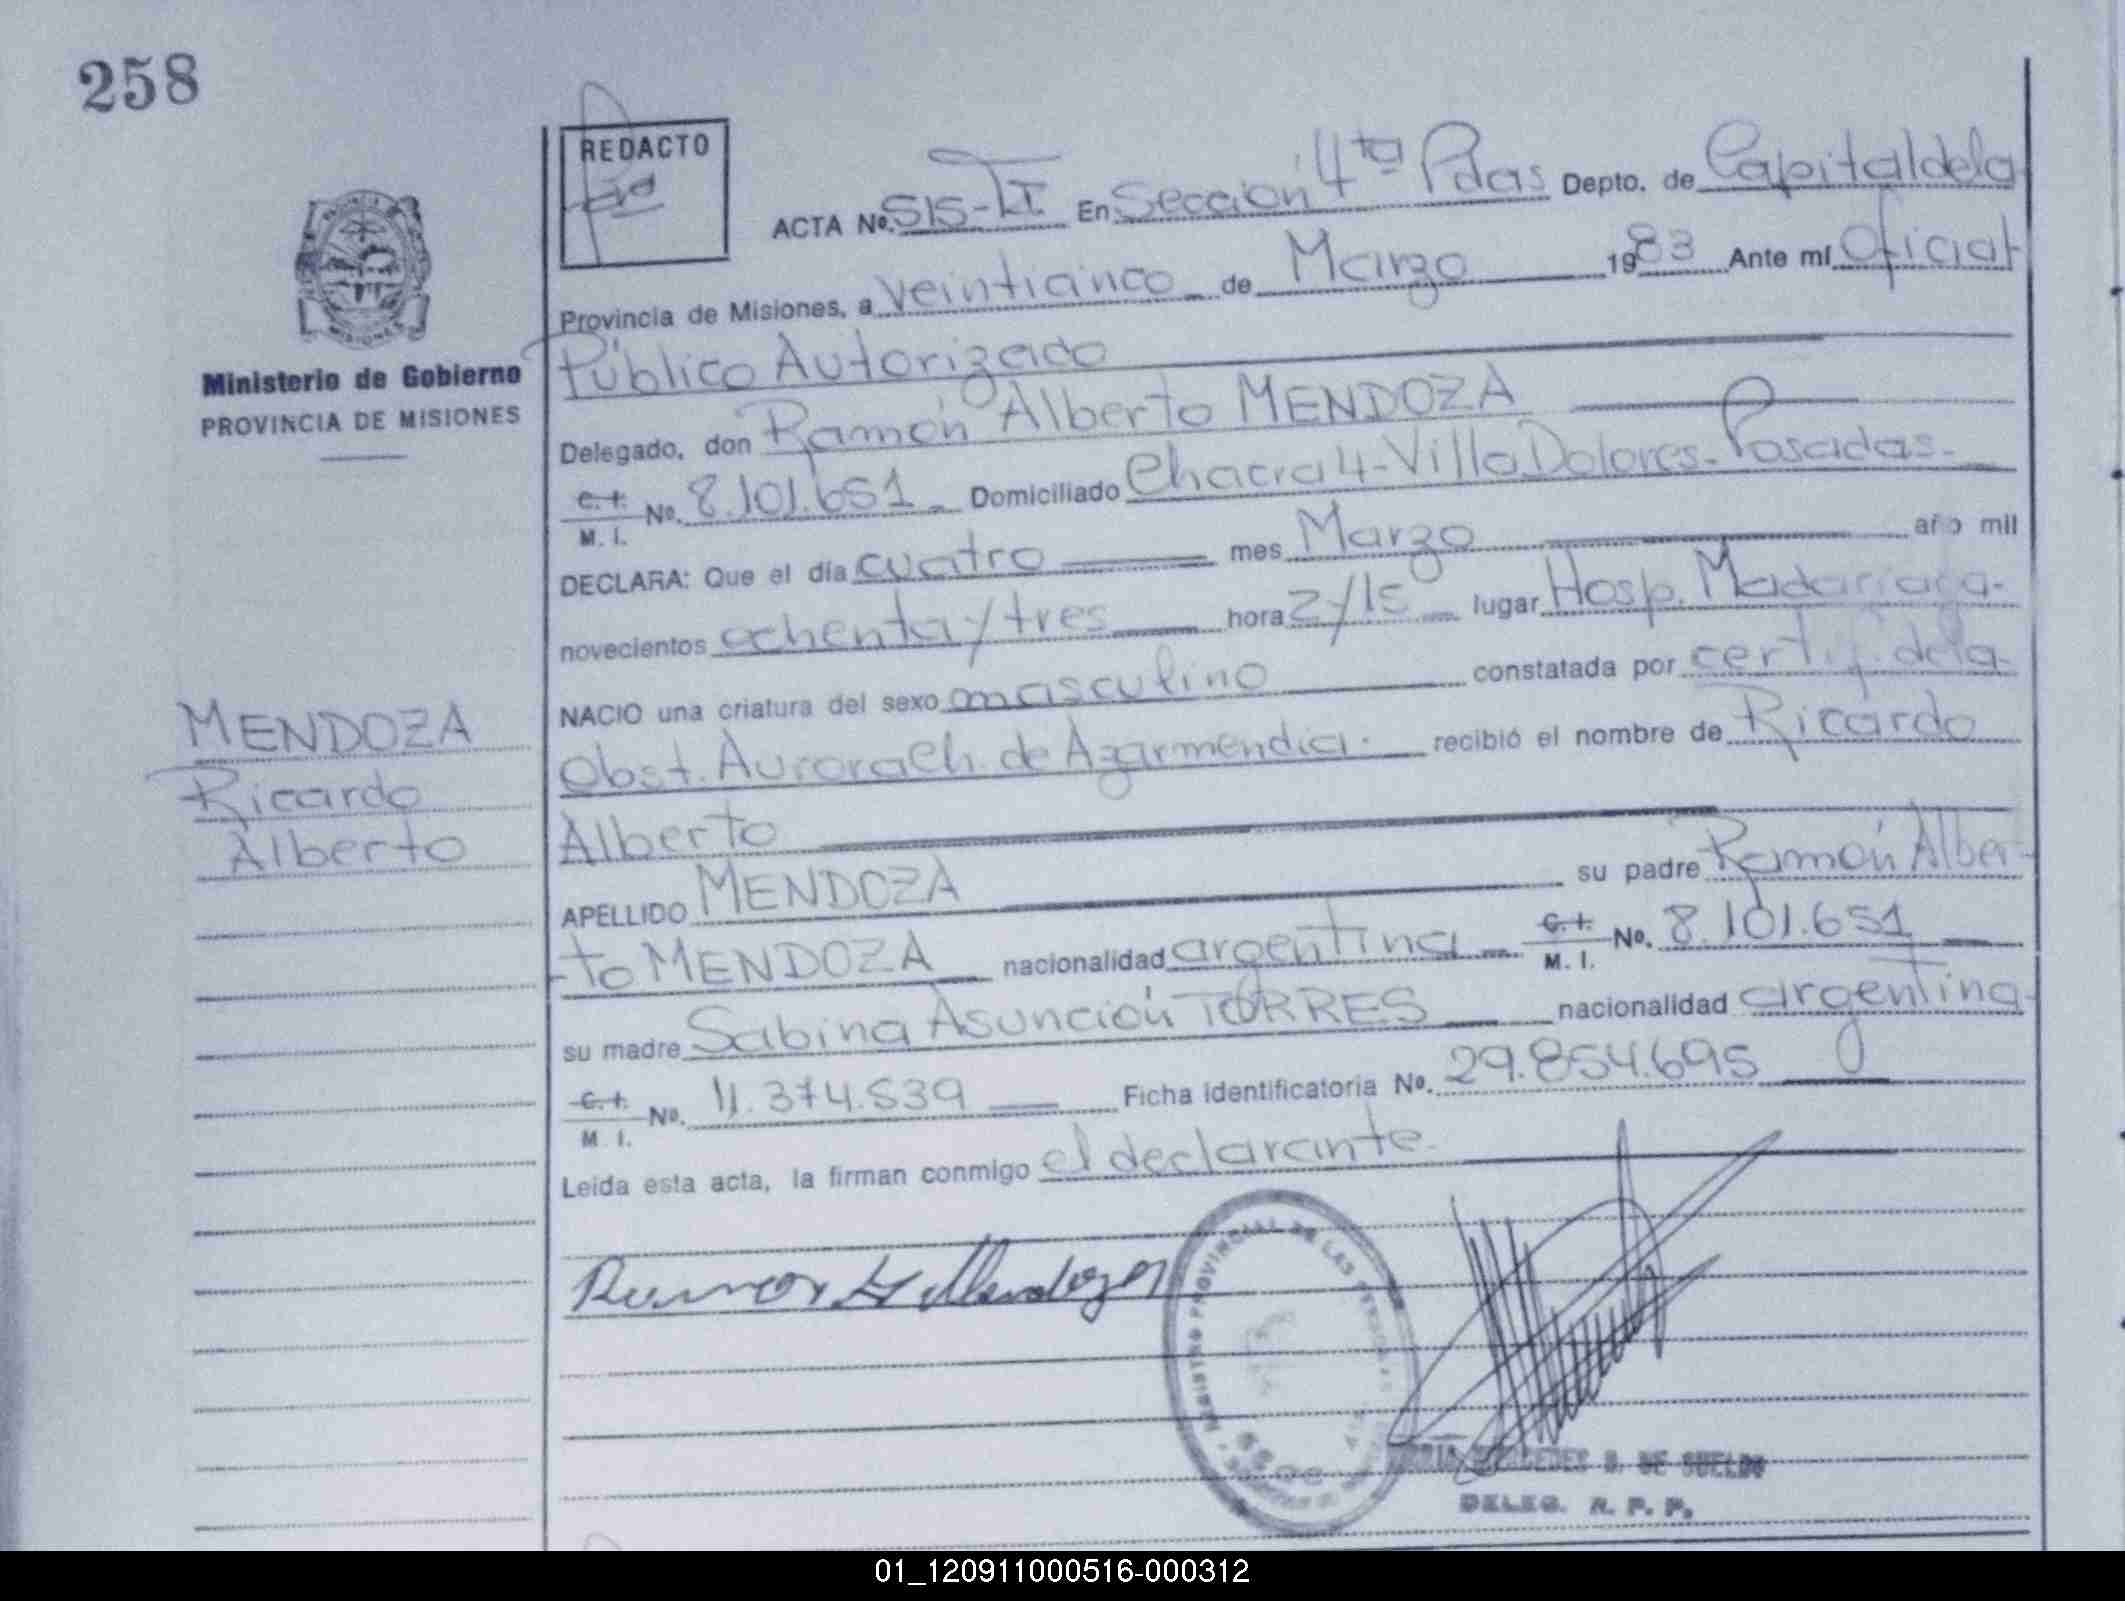 258
REDACTO
ACTA Nº. 515-II En Sección 4ta Pdas Depto. de Capital de la
Provincia de Misiones, a veinticinco de Marzo 1983 Ante mí Oficial
Público Autorizado
Ministerio de Gobierno
PROVINCIA DE MISIONES
Delegado, don Ramón Alberto MENDOZA
C. I. / M. I. Nº. 8.101.651 Domiciliado Chacra 4-Villa Dolores-Posadas-
DECLARA: Que el día cuatro mes Marzo año mil
novecientos ochenta y tres hora 2/15 lugar Hosp. Madariaga-
NACIO una criatura del sexo masculino constatada por certif. de la-
Obst. Aurora Ch. de Azarmendia. recibió el nombre de Ricardo
Alberto
MENDOZA
Ricardo
Alberto
APELLIDO MENDOZA su padre Ramón Alber-
-to MENDOZA nacionalidad argentina C. I. / M. I. Nº. 8.101.651
su madre Sabina Asunción TORRES nacionalidad argentina-
C. I. / M. I. Nº. 11.374.539 Ficha identificatoria Nº. 29.854.695
Leída esta acta, la firman conmigo el declarante.
Ramon A Mendoza
REGISTRO PROVINCIAL DE LAS PERSONAS
MERCEDES B. DE SUELDO
DELEG. R. P. P.
01_120911000516-000312